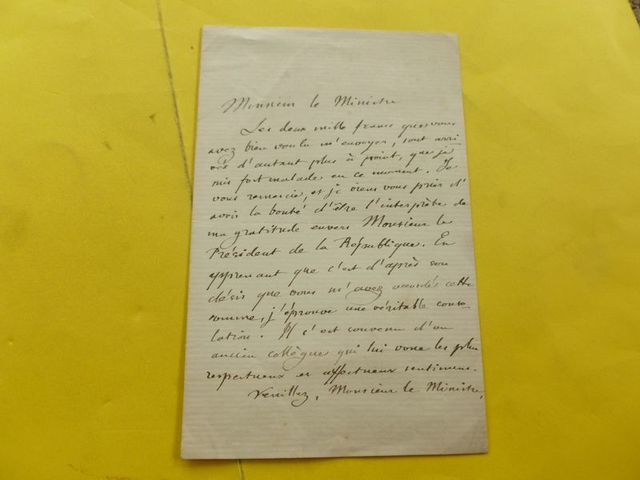 Monsieur le Ministre
Les deux mille francs que vous
avez bien voulu m'envoyer, sont arri
vés d'autant plus à point, que je
suis fort malade en ce moment. Je
vous remercie, et je viens vous prier d'
avoir la bonté d'être l'interprète de
ma gratitude envers Monsieur le
Président de la République. En
apprenant que c'est d'après son
désir que vous m'avez accordés cette
somme, j'éprouve une véritable conso
lation. Il s'est souvenu d'un
ancien collègue qui lui voue les plus
respectueux et affectueux sentimens.
Veuillez, Monsieur le Ministre,